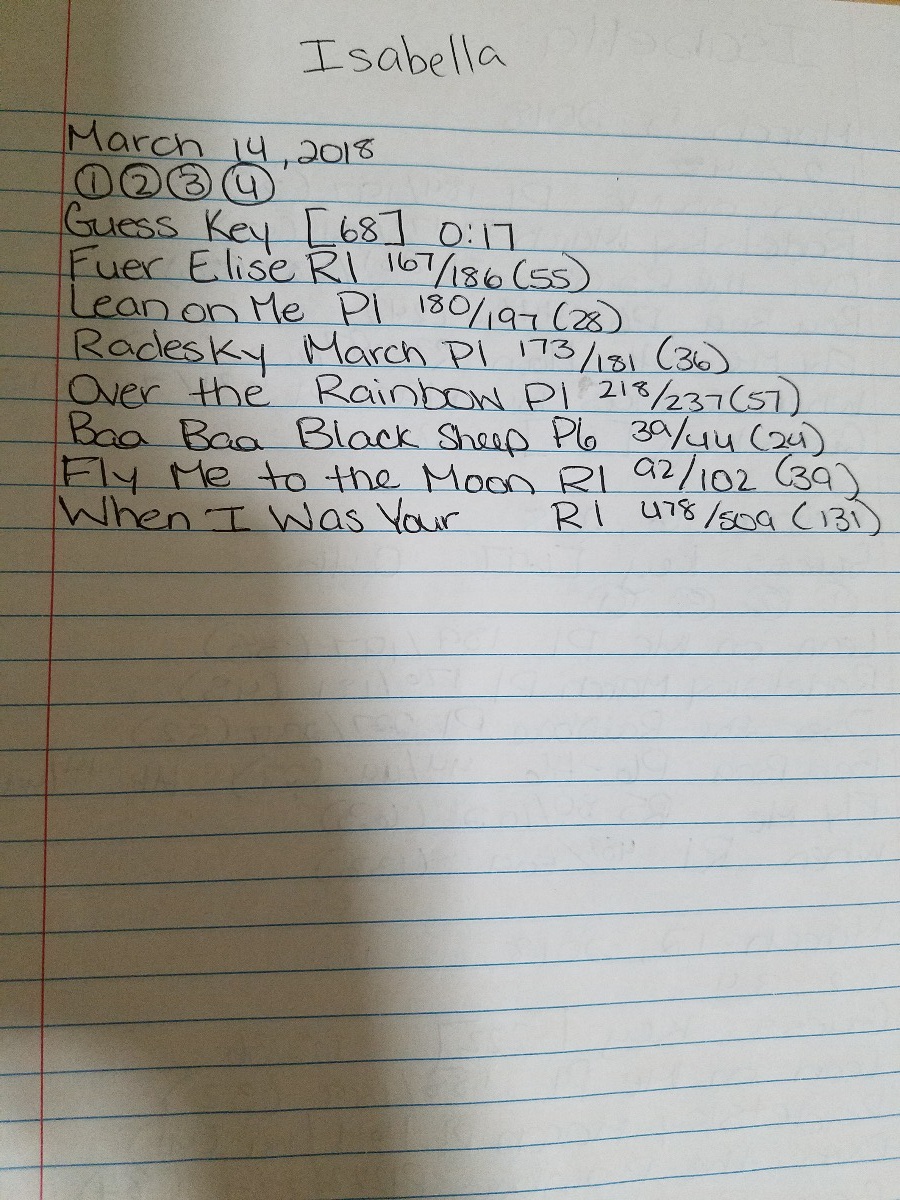 Isabella
March 14, 2018
① ② ③ ④
Guess Key [68] 0:17
Fuer Elise R1 167/186 (55)
Lean on Me P1 180/197 (28)
Radesky March P1 173/181 (36)
Over the Rainbow P1 218/237 (57)
Baa Baa Black Sheep P6 39/44 (24)
Fly Me to the Moon R1 92/102 (39)
When I Was Your R1 478/509 (131)